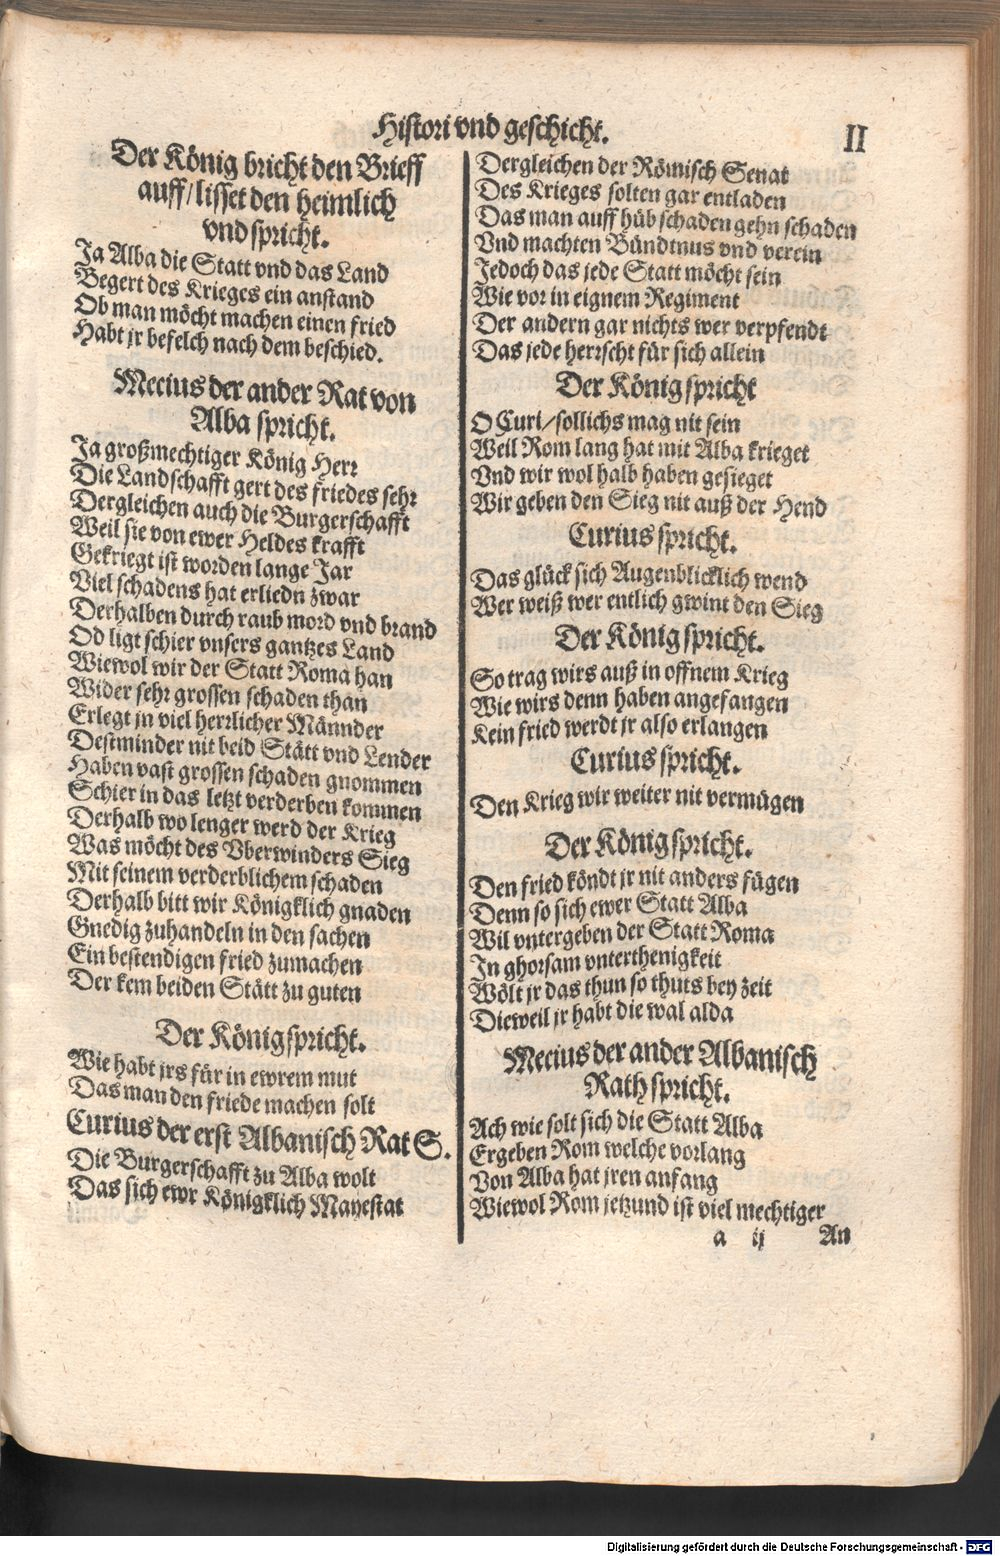 Histori vnd geschicht.
II
Der König bricht den Brieff
auff/lisset den heimlich
vnd spricht.
Ja Alba die Statt vnd das Land
Begert des Krieges ein anstand
Ob man möcht machen einen fried
Habt jr befelch nach dem beschied.
Mecius der ander Rat von
Alba spricht.
Ja großmechtiger König Herr
Die Landschafft gert des friedes sehr
Dergleichen auch die Burgerschafft
Weil sie von ewer Heldes krafft
Gekriegt ist worden lange Jar
Viel schadens hat erliedn zwar
Derhalben durch raub mord vnd brand
Od ligt schier vnsers gantzes Land
Wiewol wir der Statt Roma han
Wider sehr grossen schaden than
Erlegt jn viel herrlicher Männder
Destminder nit beid Stätt vnd Lender
Haben vast grossen schaden gnommen
Schier in das letzt verderben kommen
Derhalb wo lenger werd der Krieg
Was möcht des Vberwinders Sieg
Mit seinem verderblichem schaden
Derhalb bitt wir Königklich gnaden
Gnedig zuhandeln in den sachen
Ein bestendigen fried zumachen
Der kem beiden Stätt zu guten
Der König spricht.
Wie habt jrs für in ewrem mut
Das man den friede machen solt
Curius der erst Albanisch Rat S.
Die Burgerschafft zu Alba wolt
Das sich ewr Königklich Mayestat
Dergleichen der Römisch Senat
Des Krieges solten gar entladen
Das man auff hüb schaden gehn schaden
Vnd machten Bündtnus vnd verein
Jedoch das jede Statt möcht sein
Wie vor in eignem Regiment
Der andern gar nichts wer verpfendt
Das jede herrscht für sich allein
Der König spricht
O Curi/sollichs mag nit sein
Weil Rom lang hat mit Alba krieget
Vnd wir wol halb haben gesieget
Wir geben den Sieg nit auß der Hend
Curius spricht.
Das glück sich Augenblicklich wend
Wer weiß wer entlich gwint den Sieg
Der König spricht.
So trag wirs auß in offnem Krieg
Wie wirs denn haben angefangen
Kein fried werdt jr also erlangen
Curius spricht.
Den Krieg wir weiter nit vermügen
Der König spricht.
Den fried köndt jr nit anders fügen
Denn so sich ewer Statt Alba
Wil vntergeben der Statt Roma
In ghorsam vnterthenigkeit
Wölt jr das thun so thuts bey zeit
Dieweil jr habt die wal alda
Mecius der ander Albanisch
Rath spricht.
Ach wie solt sich die Statt Alba
Ergeben Rom welche vorlang
Von Alba hat jren anfang
Wiewol Rom jetzund ist viel mechtiger
a ij An
Digitalisierung gefördert durch die Deutsche Forschungsgemeinschaft - DFG